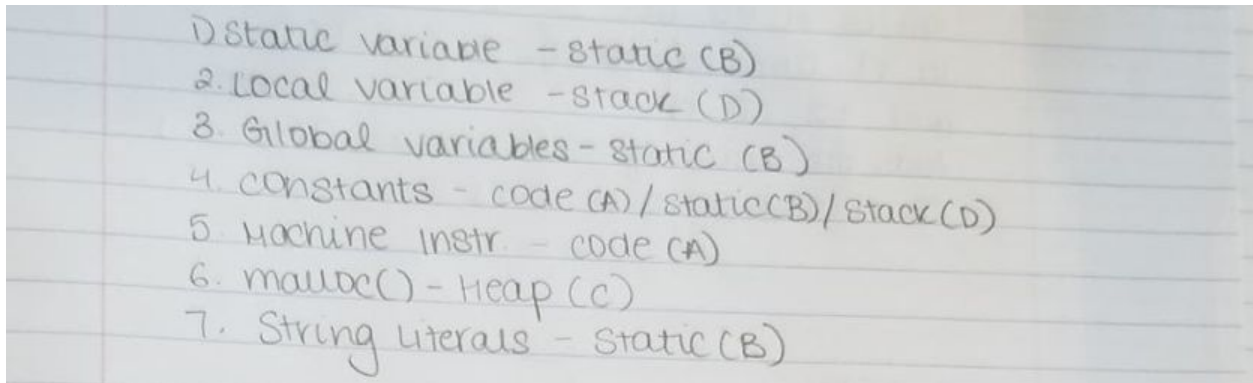 1) Static variable - static (B)
2. Local variable - stack (D)
3. Global variables - static (B)
4. constants - code (A) / static (B) / stack (D)
5. Machine Instr. - code (A)
6. malloc() - Heap (C)
7. String literals - static (B)